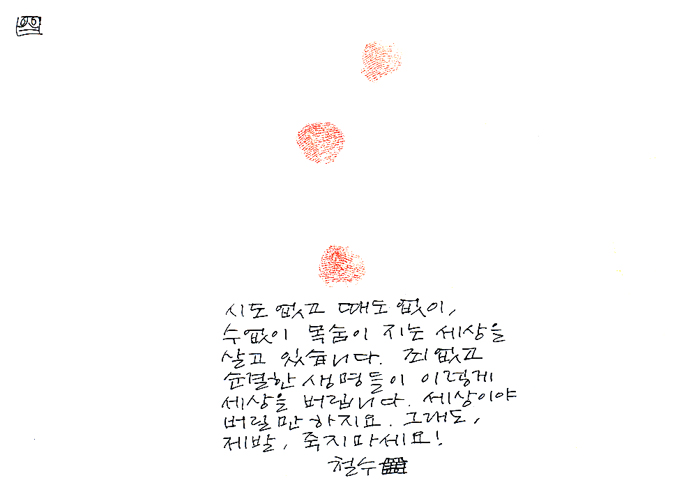 시도 없고 때도 없이,
수없이 목숨이 지는 세상을
살고 있습니다. 죄 없고
순결한 생명들이 이렇게
세상을 버립니다. 세상이야
버릴만 하지요. 그래도,
제발, 죽지마세요!
철수